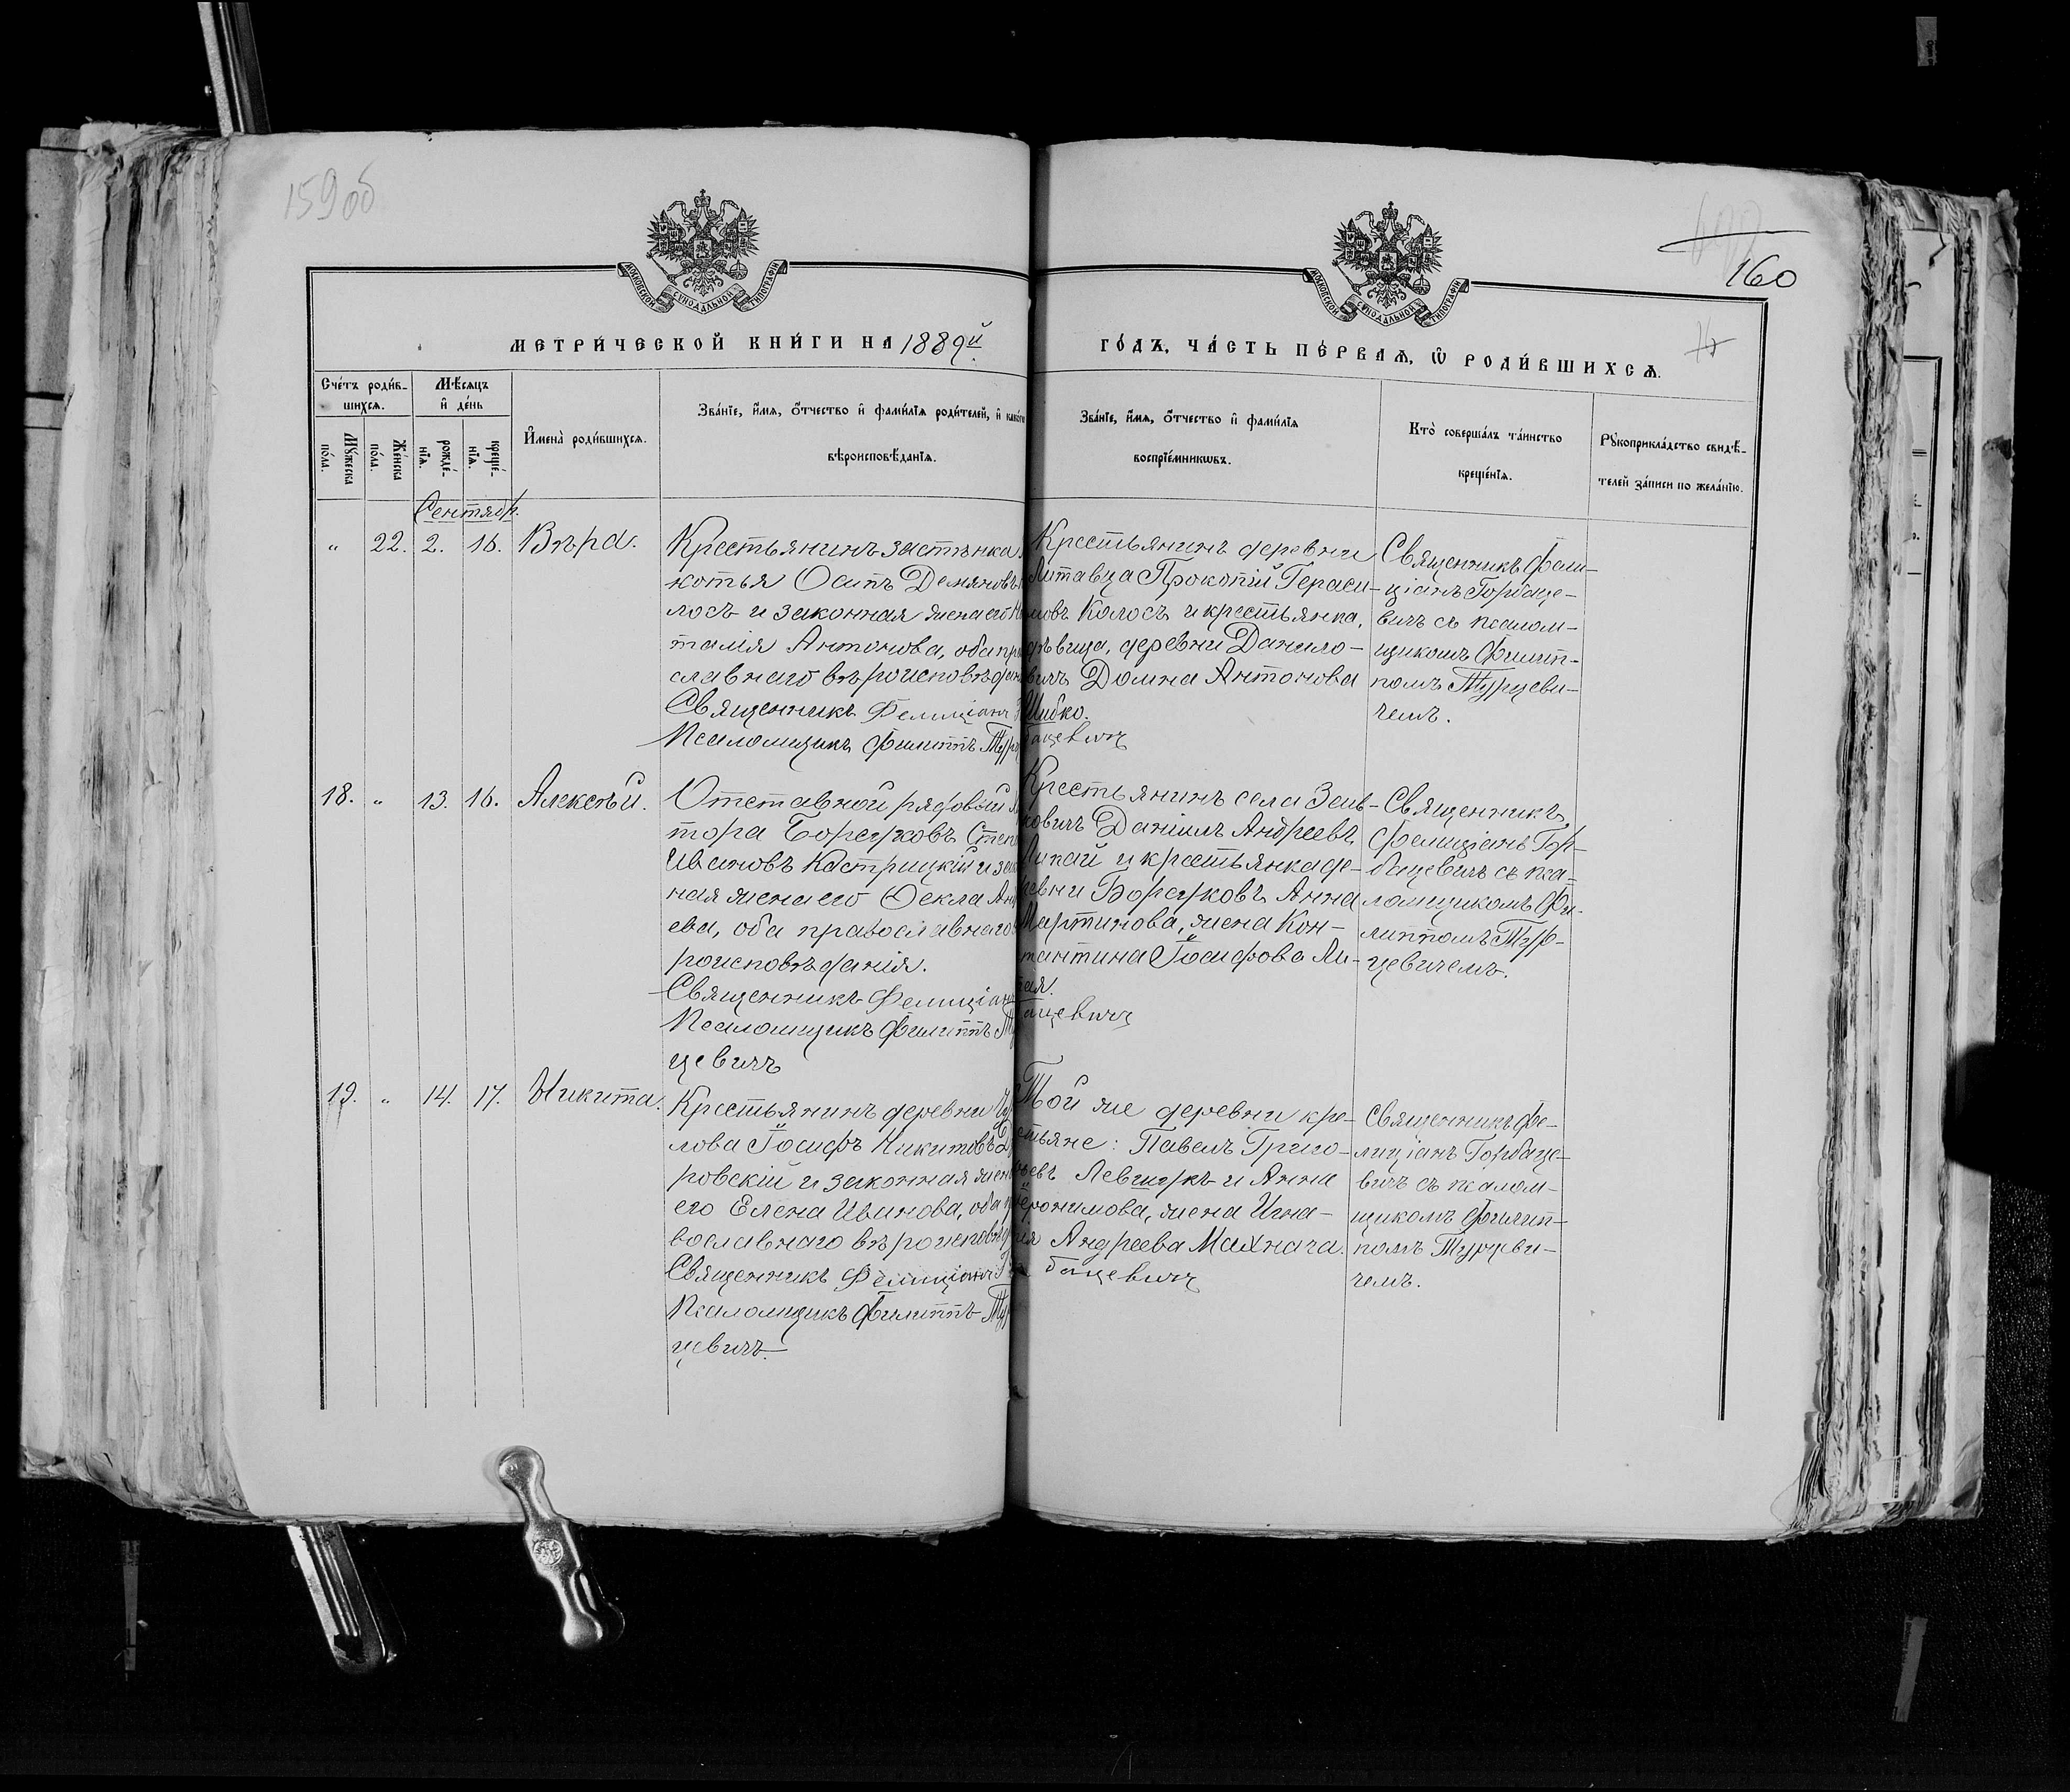 159об
160
МОСКОВСКОЙ СѴНОДАЛЬНОЙ ТИПОГРАФІИ
МОСКОВСКОЙ СѴНОДАЛЬНОЙ ТИПОГРАФІИ
МЕТРИ́ЧЕСКОЙ КНИ́ГИ НА 1889й
ГО́ДЪ, ЧА́СТЬ ПЕ́РВАѦ, Ѽ РОДИ́ВШИХСѦ.
Сче́тъ роди́в-
шихсѧ.
Мѣ́сѧцъ
и҆ де́нь
Мꙋ́жеска
по́ла.
Же́нска
по́ла.
рожде́-
нїѧ.
креще́-
нїѧ.
И҆мена̀ роди́вшихсѧ.
Зва́нїе, и҆́мѧ, ѻ҆́тчество и҆ фами́лїѧ роди́телей, и҆ како́гѡ
вѣроисповѣ́данїѧ.
Зва́нїе, и҆́мѧ, ѻ҆́тчество и҆ фами́лїѧ
воспрїе́мникѡвъ.
Кто̀ соверша́лъ та́инство
креще́нїѧ.
Рꙋкоприкла́дство свидѣ́-
телей за́писи по жела́нїю.
Сентябр.
" 22. 2. 16. Вѣра.
Крестьянинъ застѣнка
котья Осипъ Демяновъ
лосъ и законная жена его На
талія Антонова, оба пра
славнаго вѣроисповѣдан
Священникъ Фелиціанъ
Псаломщикъ Филиппъ Тур
Крестьянинъ деревни
Литавца Прокопій Гераси-
мовъ Колосъ и крестьянка,
дѣвица, деревни Данило-
вичъ Домна Антонова
Шибко.
бацевичъ
Священникъ Фели-
ціанъ Горбаце-
вичъ съ псалом-
щикомъ Филип-
помъ Турцеви-
чемъ.
18. " 13. 16. Алексѣй.
Отставной рядовый
тора Борадковъ Степ
Ивановъ Кастрицкій и зак
ная жена его Ѳекла Ан
ева, оба православнаго
роисповѣданія.
Священникъ Фелиціанъ
Псаломщикъ Филиппъ Ту
цевичъ
Крестьянинъ села Зен-
ковичъ Даніилъ Андреевъ
Липай и крестьянка де-
ревни Борадковъ Анна
Мартинова, жена Кон-
тантина Іосифова Ли-
пая.
ацевичъ
Священникъ
Фелиціанъ Гор-
бацевичъ съ пса-
ломщикомъ Фи-
липпомъ Тур-
цевичемъ.
19. " 14. 17. Никита.
Крестьянинъ деревни
лова Іосифъ Никитовъ
ровскій и законная жена
его Елена Иванова, оба п
вославнаго вѣроисповѣд
Священникъ Фелиціанъ
Псаломщикъ Филиппъ Тур
цевичъ.
Той же деревни кре-
стьяне: Павелъ Григо-
рьевъ Левшукъ и Анна
Іеронимова, жена Игна-
тія Андреева Махнача.
бацевичъ
Священникъ Фе-
лиціанъ Горбаце-
вичъ съ псалом-
щикомъ Филип-
помъ Турцеви-
чемъ.